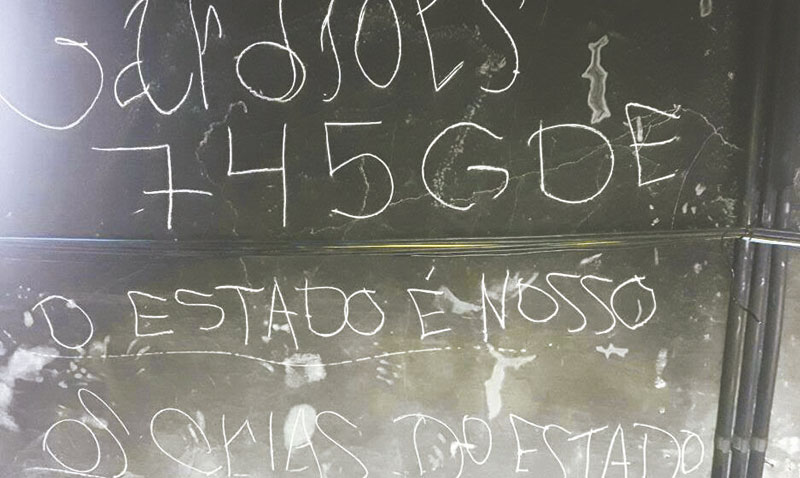 Gardiões
745 GDE
O ESTADO É NOSSO
OS CRIAS DO ESTADO